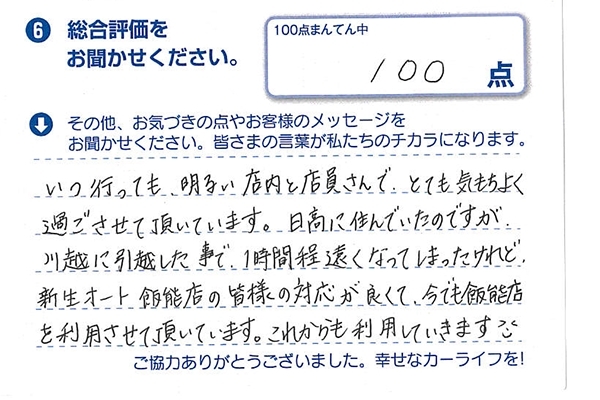 6 総合評価を
お聞かせください。
100点まんてん中
100 点
その他、お気づきの点やお客様のメッセージを
お聞かせください。皆さまの言葉が私たちのチカラになります。
いつ行っても、明るい店内と店員さんで、とても気もちよく
過ごさせて頂いています。日高に住んでいたのですが、
川越に引越した事で、1時間程遠くなってしまったけれど、
新生オート飯能店の皆様の対応が良くて、今でも飯能店
を利用させて頂いています。これからも利用していきます
ご協力ありがとうございました。幸せなカーライフを!